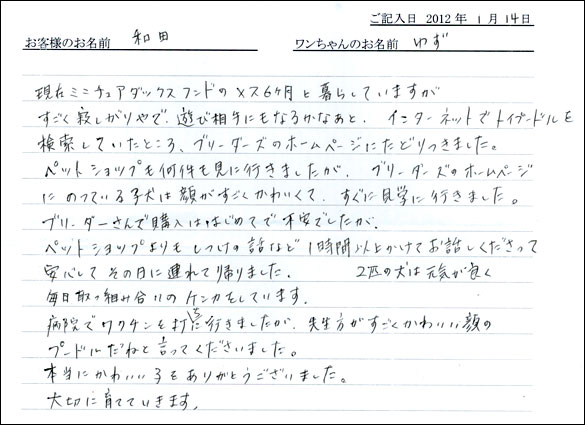 ご記入日 2012 年 1 月 14 日
お客様のお名前 和田 ワンちゃんのお名前 ゆず
現在ミニチュアダックスフンドのメス6ヶ月と暮らしていますが
すごく寂しがりやで、遊び相手にもなるかなあと、インターネットでトイプードルを
検索していたところ、ブリーダーズのホームページにたどりつきました。
ペットショップも何件も見に行きましたが、ブリーダーズのホームページ
にのっている子犬は顔がすごくかわいくて、すぐに見学に行きました。
ブリーダーさんで購入ははじめてで不安でしたが、
ペットショップよりもしつけの話など1時間以上かけてお話しくださって
安心してその日に連れて帰りました。 2匹の犬は元気が良く
毎日取っ組み合いのケンカをしています。
病院でワクチンを打ちに行きましたが、先生方がすごくかわいい顔の
プードルだねと言ってくださいました。
本当にかわいい子をありがとうございました。
大切に育てていきます。